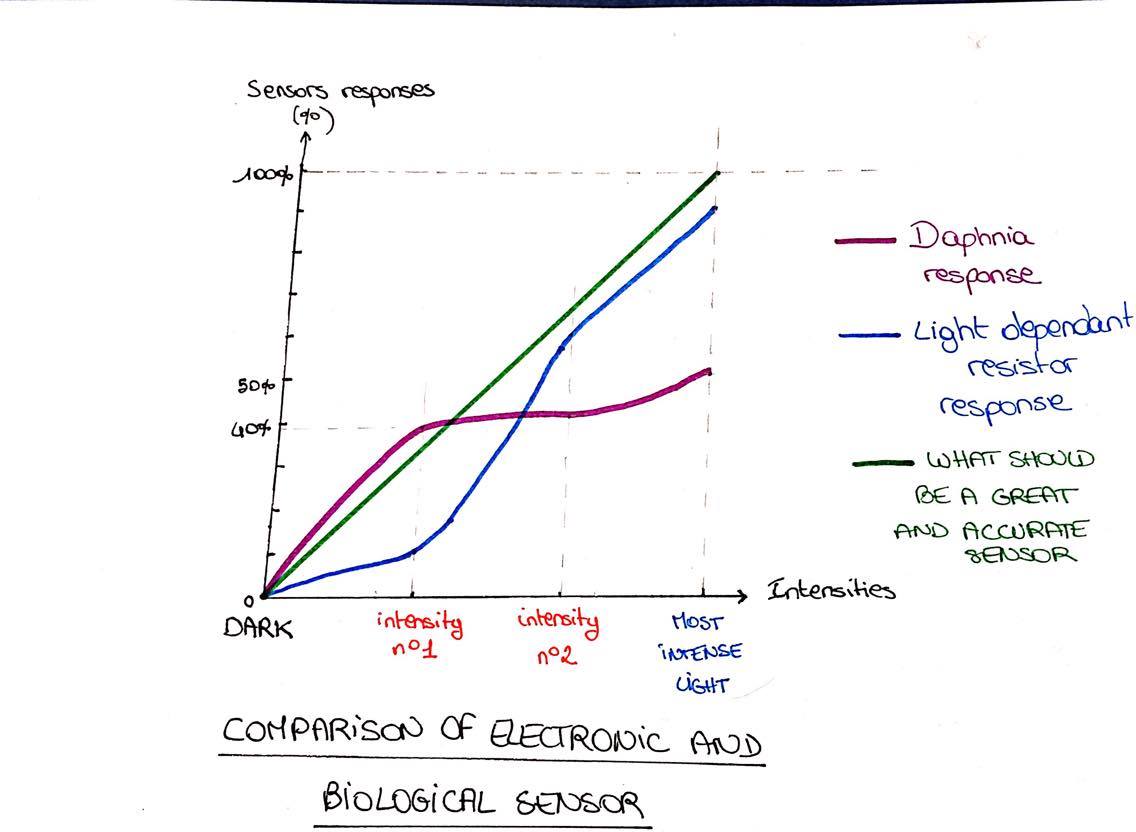 Sensors responses
(%)
100%
50%
40%
0
DARK
intensity
n°1
intensity
n°2
MOST
INTENSE
LIGHT
Intensities
Daphnia
response
Light dependant
resistor
response
WHAT SHOULD
BE A GREAT
AND ACCURATE
SENSOR
COMPARISON OF ELECTRONIC AND
BIOLOGICAL SENSOR